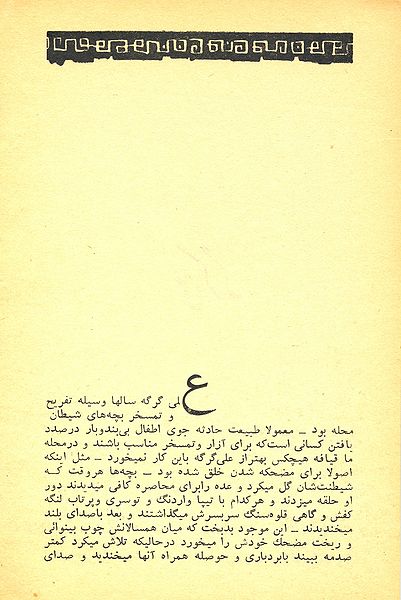 علی گرگه سالها وسیله تفریح
و تمسخر بچه‌های شیطان
محله بود ــ معمولا طبیعت حادثه جوی اطفال بی‌بندوبار درصدد
یافتن کسانی است‌که برای آزار وتمسخر مناسب باشند و درمحله
ما قیافه هیچکس بهتراز علی‌گرگه باین کار نمیخورد ــ مثل اینکه
اصولا برای مضحکه شدن خلق شده بود ــ بچه‌ها هروقت که
شیطنت‌شان گل میکرد و عده رابرای محاصره کافی میدیدند دور
او حلقه میزدند و هرکدام با تیپا واردنگ و توسری وپرتاب لنگه
کفش و گاهی قلوه‌سنگ سربسرش میگذاشتند و بعد باصدای بلند
میخندیدند ــ این موجود بدبخت که میان همسالانش چوب بینوائی
و ریخت مضحک خودش را میخورد درحالیکه تلاش میکرد کمتر
صدمه ببیند بابردباری و حوصله همراه آنها میخندید و صدای